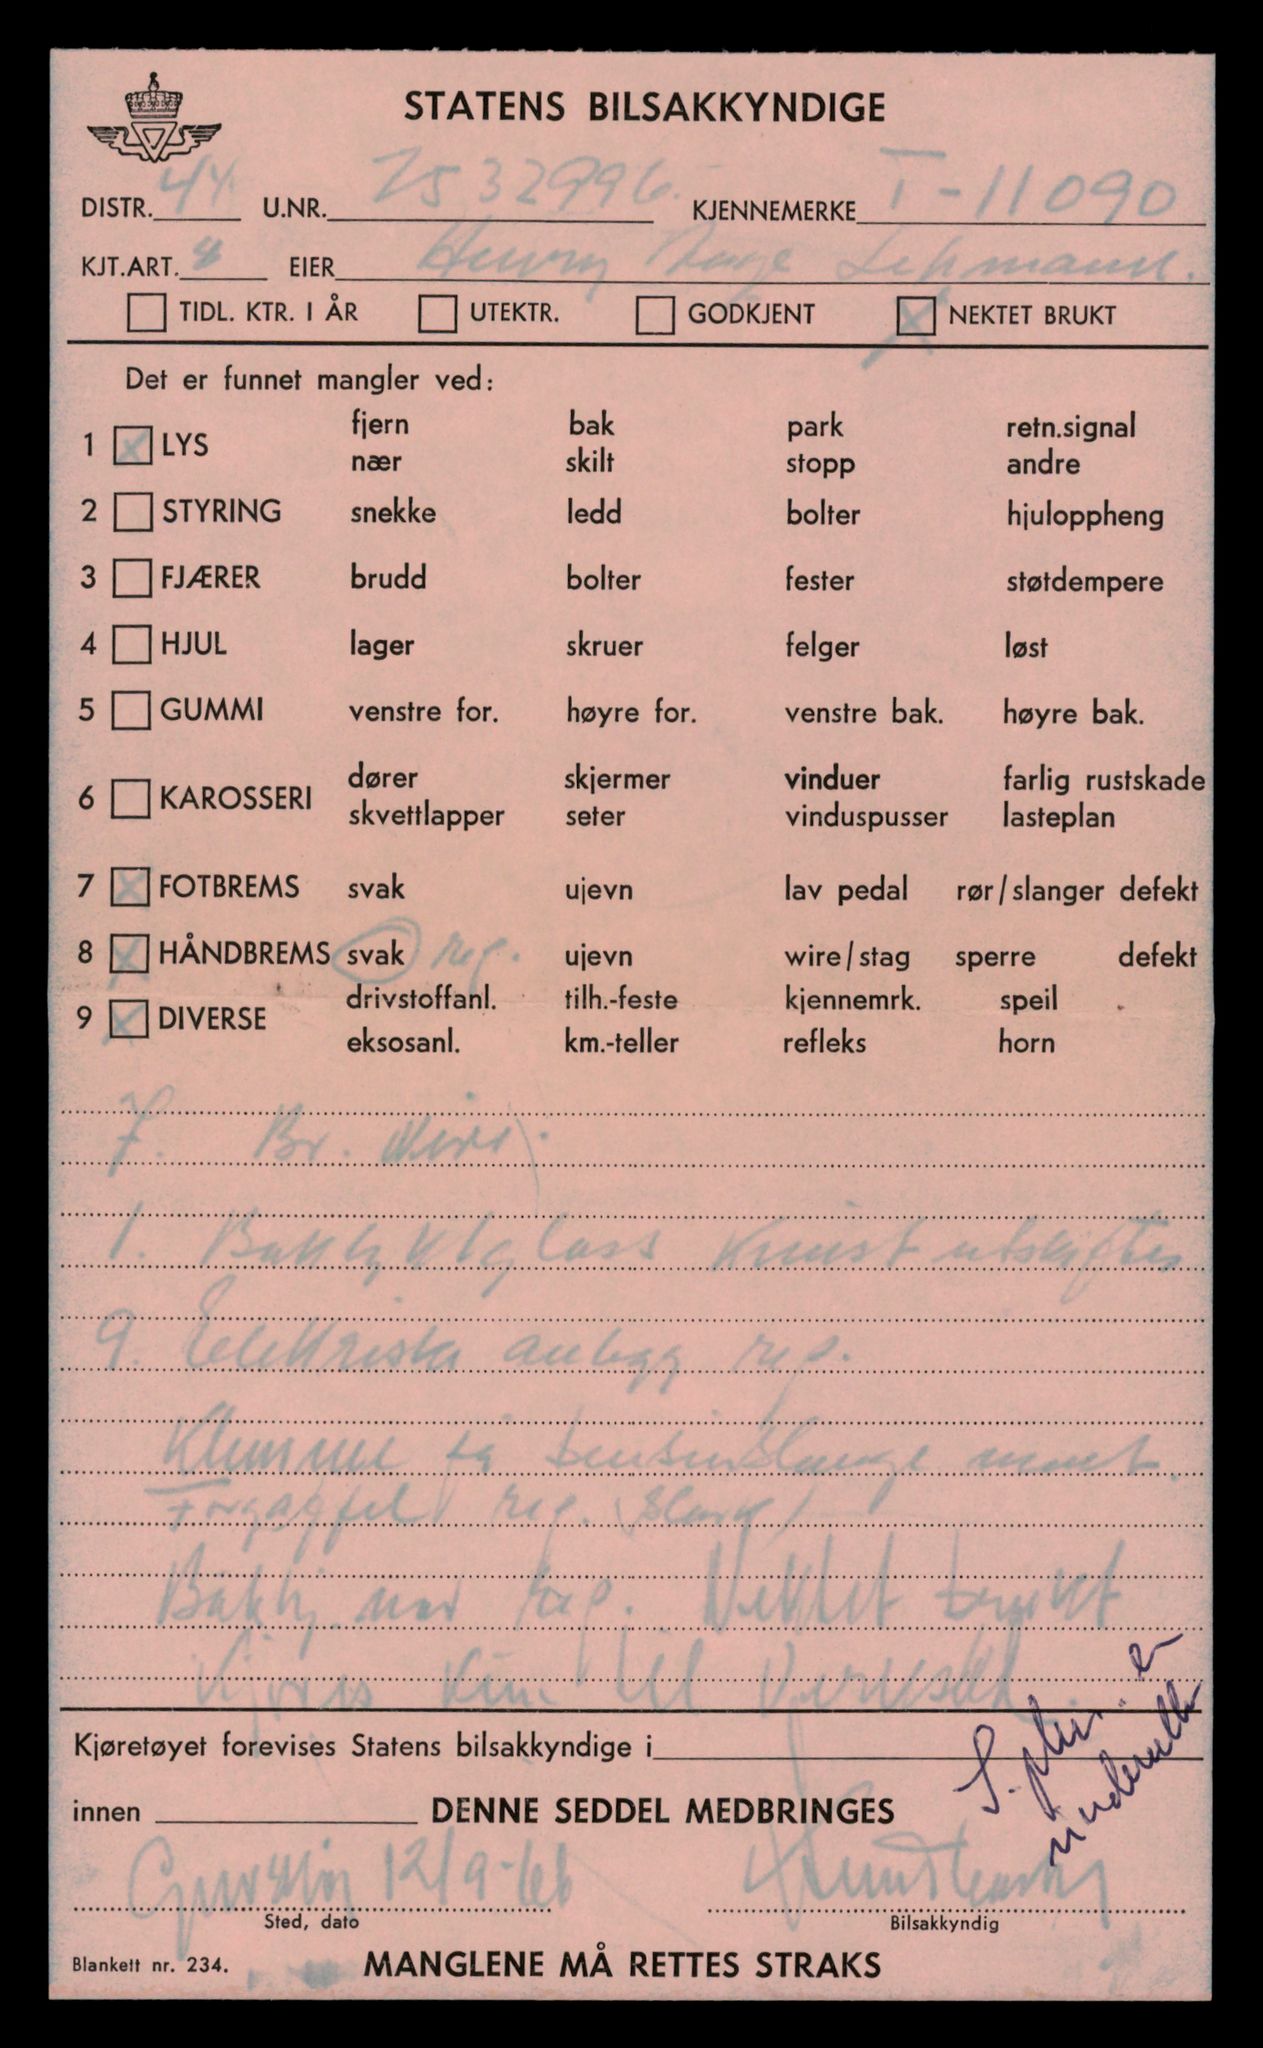 STATENS BILSAKKYNDIGE
DISTR. 44. U.NR. 7532996. KJENNEMERKE T-11090
KJT.ART. 4 EIER Henry Aage Lehmann.
TIDL. KTR. I ÅR UTEKTR. GODKJENT X NEKTET BRUKT
Det er funnet mangler ved:
1 X LYS fjern bak park retn.signal
nær skilt stopp andre
2 STYRING snekke ledd bolter hjuloppheng
3 FJÆRER brudd bolter fester støtdempere
4 HJUL lager skruer felger løst
5 GUMMI venstre for. høyre for. venstre bak. høyre bak.
6 KAROSSERI dører skjermer vinduer farlig rustskade
skvettlapper seter vinduspusser lasteplan
7 X FOTBREMS svak ujevn lav pedal rør/slanger defekt
8 X HÅNDBREMS svak rep. ujevn wire/stag sperre defekt
9 X DIVERSE drivstoffanl. tilh.-feste kjennemrk. speil
eksosanl. km.-teller refleks horn
7. Br.
1. Baklyktglass knust utskiftes
9. Elektriske anlegg rep.
Klemme på bensinslange mont.
rep.
rep. Nektet brukt
Kjøres kun til verksted.
Kjøretøyet forevises Statens bilsakkyndige i
innen DENNE SEDDEL MEDBRINGES
12/9-66
Sted, dato Bilsakkyndig
Blankett nr. 234. MANGLENE MÅ RETTES STRAKS